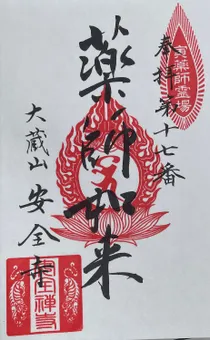 奉拝第十七番
寅薬師霊場
薬師如来
大蔵山 安全寺
安全禅寺